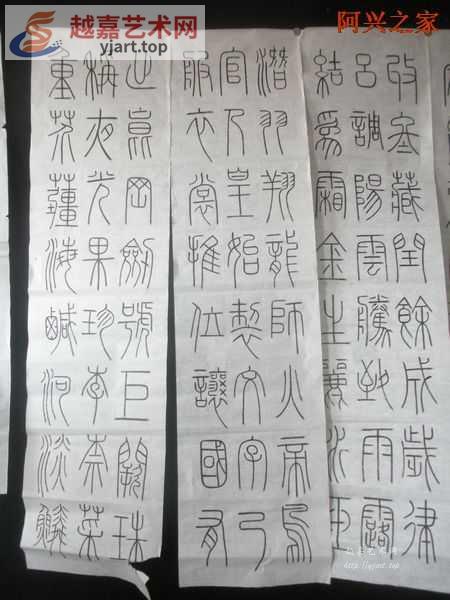 越嘉艺术网
yjart.top
阿兴之家
收冬藏閏餘成歲律
呂調陽雲騰致雨露
結爲霜金生麗水玉
潛羽翔龍師火帝鳥
官人皇始製文字乃
服衣裳推位讓國有
出崑岡劍號巨闕珠
稱夜光果珍李柰菜
重芥薑海鹹河淡鱗
越嘉艺术网
http://yjart.top